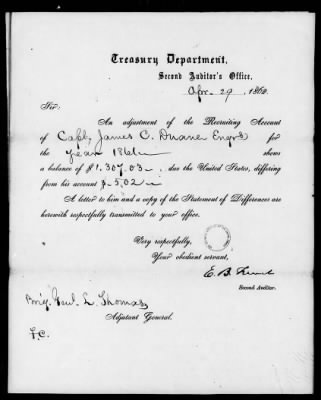 Treasury Department,
Second Auditor's Office,
Apr. 29, 1862.
Sir:
An adjustment of the Recruiting Account
of Capt. James C. Duane Engrs for
the year 1861 shows
a balance of $1.307.03 due the United States, differing
from his account $5.02
A letter to him and a copy of the Statement of Differences are
herewith respectfully transmitted to your office.
Very respectfully,
Your obedient servant,
E. B.
Second Auditor.
Brig. Genl. L. Thomas,
Adjutant General.